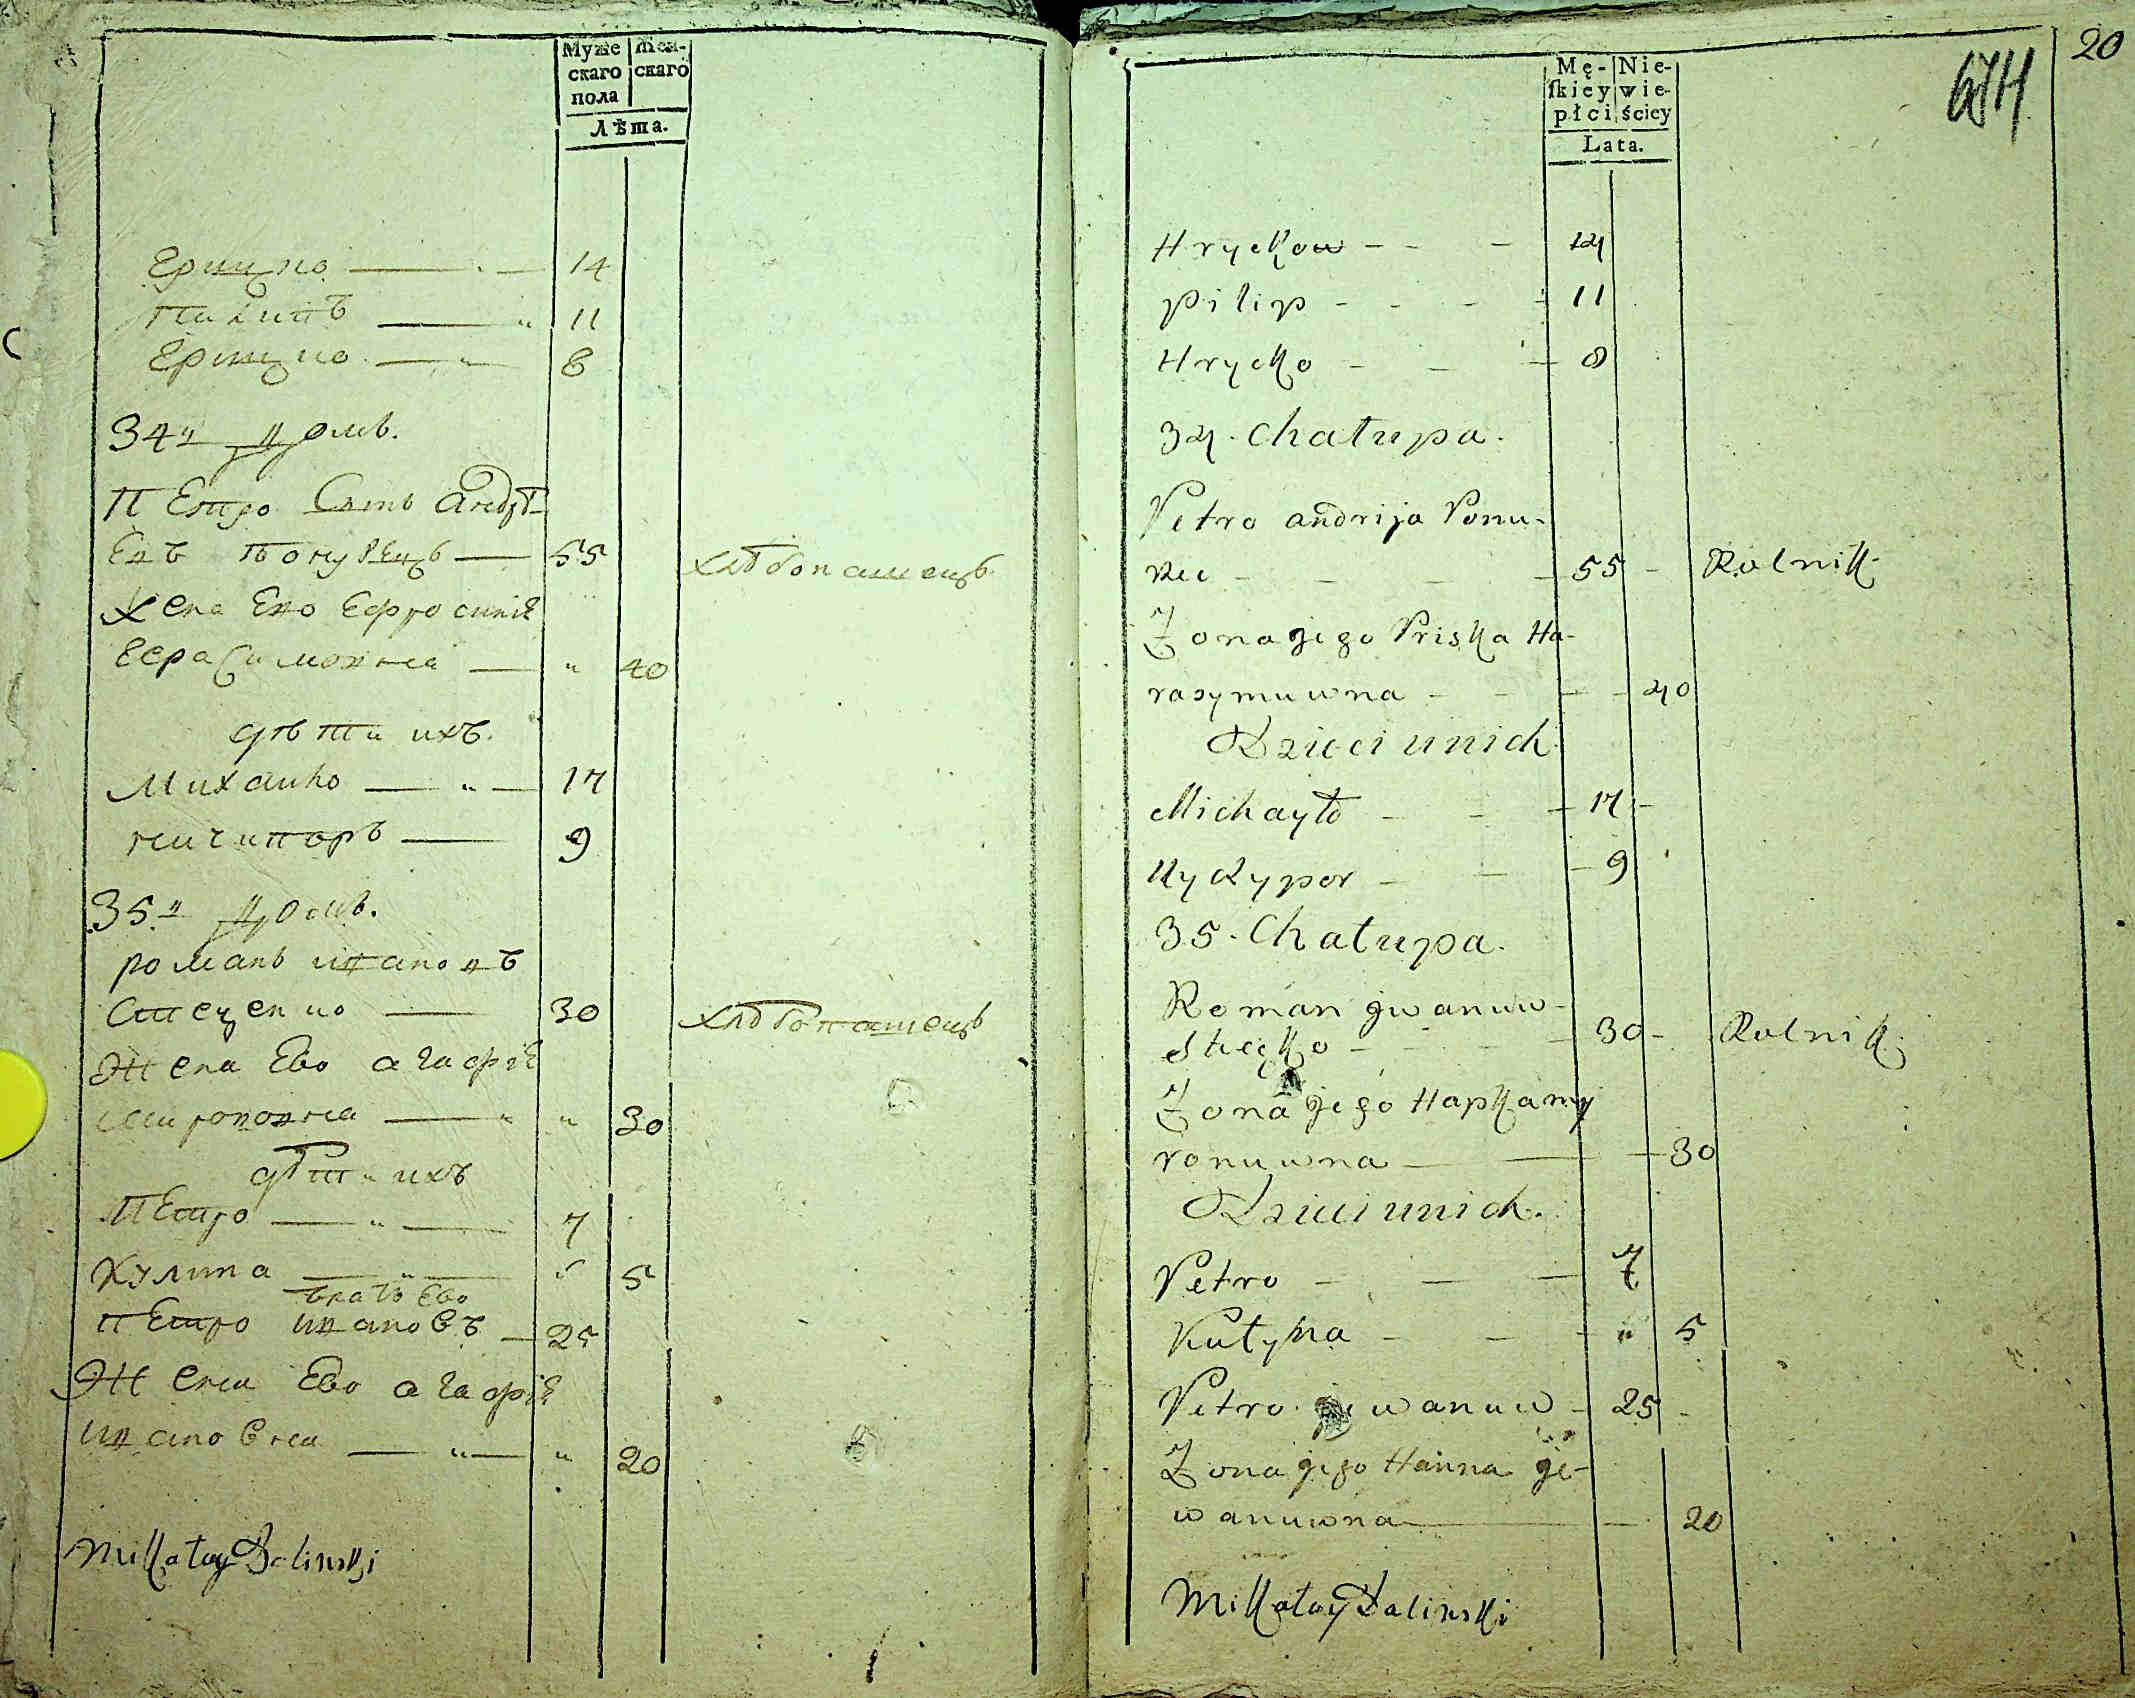 Муже
скаго
пола
жен-
скаго
Лѣта.
Ерицко 14
Пилипъ 11
Ерицко 8
34й домъ.
Петро Сынъ Андрѣ-
евъ 55 хлѣбопашецъ
Жена Ево Ефросинія
Герасимовна 40
дѣти ихъ.
Михайло 17
Ничипоръ 9
35й домъ.
романъ ивановъ
Стеценко 30 хлѣбопашецъ
Жена Ево агафія
мироновна 30
дѣти ихъ
Петро 7
Кулина 5
братъ Ево
Петро ивановъ 25
Жена Ево агафія
ивановна 20
Mikołay Dalinski
20
Mę-
ſkiey
płci
Nie-
wie-
ściey
Lata.
Hryckow 14
Pilip 11
Hrycko 8
34. Chałupa.
Petro andrija Ponu-
rec 55 Rolnik
Zona jego Priska Ha-
rasymuwna 40
Dzieci unich
Michayło 17
Nyczypor 9
35. Chałupa.
Roman jwanuw
Stecko 30 Rolnik
Zona jego Hapka my
ronuwna 30
Dzieci unich.
Petro 7
Kułyna 5
Petro jwanuw 25
Zona jego Hanna je-
wanuwna 20
Mikołay Dalinski